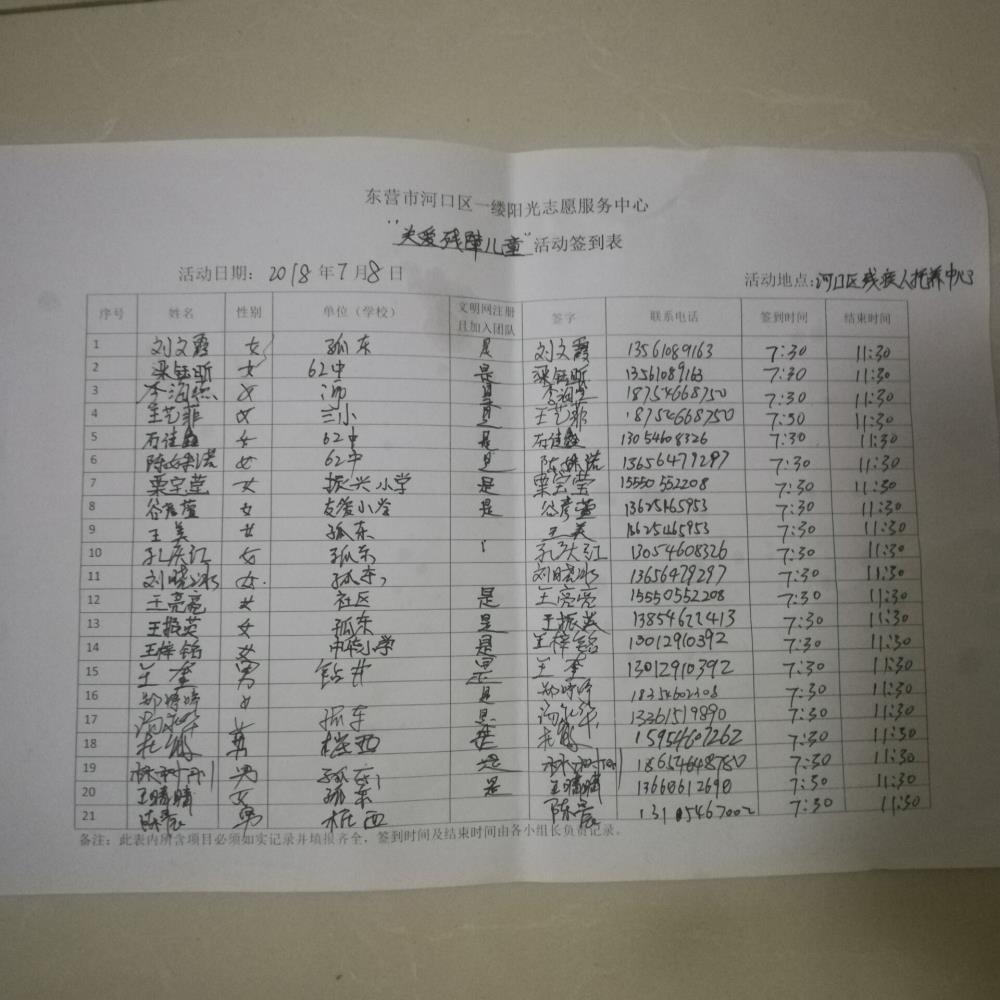 东营市河口区一缕阳光志愿服务中心
"关爱残障儿童"活动签到表
活动日期: 2018年7月8日 活动地点:河口区残疾人托养中心
序号 姓名 性别 单位（学校） 文明网注册且加入团队 签字 联系电话 签到时间 结束时间
1 刘文霞 女 孤东 是 刘文霞 13561089163 7:30 11:30
2 梁钰昕 女 62中 是 梁钰昕 13561089163 7:30 11:30
3 李海燕 女 是 李海燕 18754668750 7:30 11:30
4 王艺菲 女 三小 是 王艺菲 18754668750 7:30 11:30
5 石佳鑫 女 62中 是 石佳鑫 13054608326 7:30 11:30
6 陈姝诺 女 62中 是 陈姝诺 13656479297 7:30 11:30
7 栗宇莹 女 振兴小学 是 栗宇莹 15550552208 7:30 11:30
8 谷彦萱 女 友爱小学 是 谷彦萱 13625465953 7:30 11:30
9 王美 女 孤东 王美 13625465953 7:30 11:30
10 孔庆红 女 孤东 孔庆红 13054608326 7:30 11:30
11 刘晓冰 女 孤东 刘晓冰 13656479297 7:30 11:30
12 王亮亮 女 社区 是 王亮亮 15550552208 7:30 11:30
13 王振英 女 孤东 是 王振英 7:30 11:30
14 王梓铭 女 小学 是 王梓铭 13012910392 7:30 11:30
15 王奎 男 钻井 是 王奎 13012910392 7:30 11:30
16 郑婷婷 女 是 郑婷婷 7:30 11:30
17 孤东 是 13361519890 7:30 11:30
18 男 桩西 是 15954607262 7:30 11:30
19 男 孤东 是 18654648780 7:30 11:30
20 王晴晴 女 孤东 是 王晴晴 13660612690 7:30 11:30
21 陈晨 男 桩西 陈晨 7:30 11:30
备注：此表内所含项目必须如实记录并填报齐全，签到时间及结束时间由各小组长负责记录。